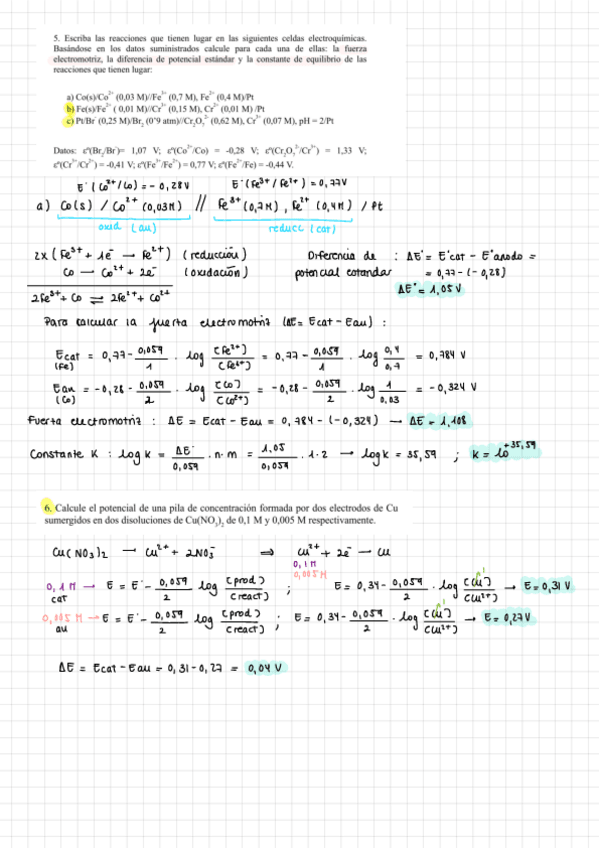 5. Escriba las reacciones que tienen lugar en las siguientes celdas electroquímicas.
Basándose en los datos suministrados calcule para cada una de ellas: la fuerza
electromotriz, la diferencia de potencial estándar y la constante de equilibrio de las
reacciones que tienen lugar:
a) Co(s)/Co²⁺ (0,03 M)//Fe³⁺ (0,7 M), Fe²⁺ (0,4 M)/Pt
b) Fe(s)/Fe²⁺ ( 0,01 M)//Cr³⁺ (0,15 M), Cr²⁺ (0,01 M) /Pt
c) Pt/Br⁻ (0,25 M)/Br₂ (0'9 atm)//Cr₂O₇²⁻ (0,62 M), Cr³⁺ (0,07 M), pH = 2/Pt
Datos: εº(Br₂/Br⁻)= 1,07 V; εº(Co²⁺/Co) = -0,28 V; εº(Cr₂O₇²⁻/Cr³⁺) = 1,33 V;
εº(Cr³⁺/Cr²⁺) = -0,41 V; εº(Fe³⁺/Fe²⁺) = 0,77 V; εº(Fe²⁺/Fe) = -0,44 V.
E°(Co²⁺/Co) = -0,28V E°(Fe³⁺/Fe²⁺) = 0,77V
a) Co(s) / Co²⁺ (0,03M) // Fe³⁺ (0,7M), Fe²⁺ (0,4M) / Pt
oxid (an) reducc (cat)
2x (Fe³⁺ + 1e⁻ → Fe²⁺) (reducción) Diferencia de : ΔE° = E°cat - E°anodo =
Co → Co²⁺ + 2e⁻ (oxidación) potencial estandar = 0,77 - (-0,28)
2Fe³⁺ + Co ⇌ 2Fe²⁺ + Co²⁺ ΔE° = 1,05 V
Para calcular la fuerza electromotriz (ΔE = Ecat - Ean) :
Ecat (Fe) = 0,77 - 0,059/1 · log [Fe²⁺]/[Fe³⁺] = 0,77 - 0,059/1 · log 0,4/0,7 = 0,784 V
Ean (Co) = -0,28 - 0,059/2 · log [Co]/[Co²⁺] = -0,28 - 0,059/2 · log 1/0,03 = -0,324 V
Fuerza electromotriz : ΔE = Ecat - Ean = 0,784 - (-0,324) → ΔE = 1,108
Constante K : log k = ΔE°/0,059 · n · m = 1,05/0,059 · 1 · 2 → log k = 35,59 ; k = 10⁺³⁵,⁵⁹
6. Calcule el potencial de una pila de concentración formada por dos electrodos de Cu
sumergidos en dos disoluciones de Cu(NO₃)₂ de 0,1 M y 0,005 M respectivamente.
Cu(NO₃)₂ → Cu²⁺ + 2NO₃⁻ ⇒ Cu²⁺ + 2e⁻ → Cu
0,1 M
0,005 M
0,1 M → E = E° - 0,059/2 log [prod]/[react] ; E = 0,34 - 0,059/2 · log [Cu]¹/[Cu²⁺] → E = 0,31 V
cat
0,005 M → E = E° - 0,059/2 log [prod]/[react] ; E = 0,34 - 0,059/2 · log [Cu]¹/[Cu²⁺] → E = 0,27 V
an
ΔE = Ecat - Ean = 0,31 - 0,27 = 0,04 V